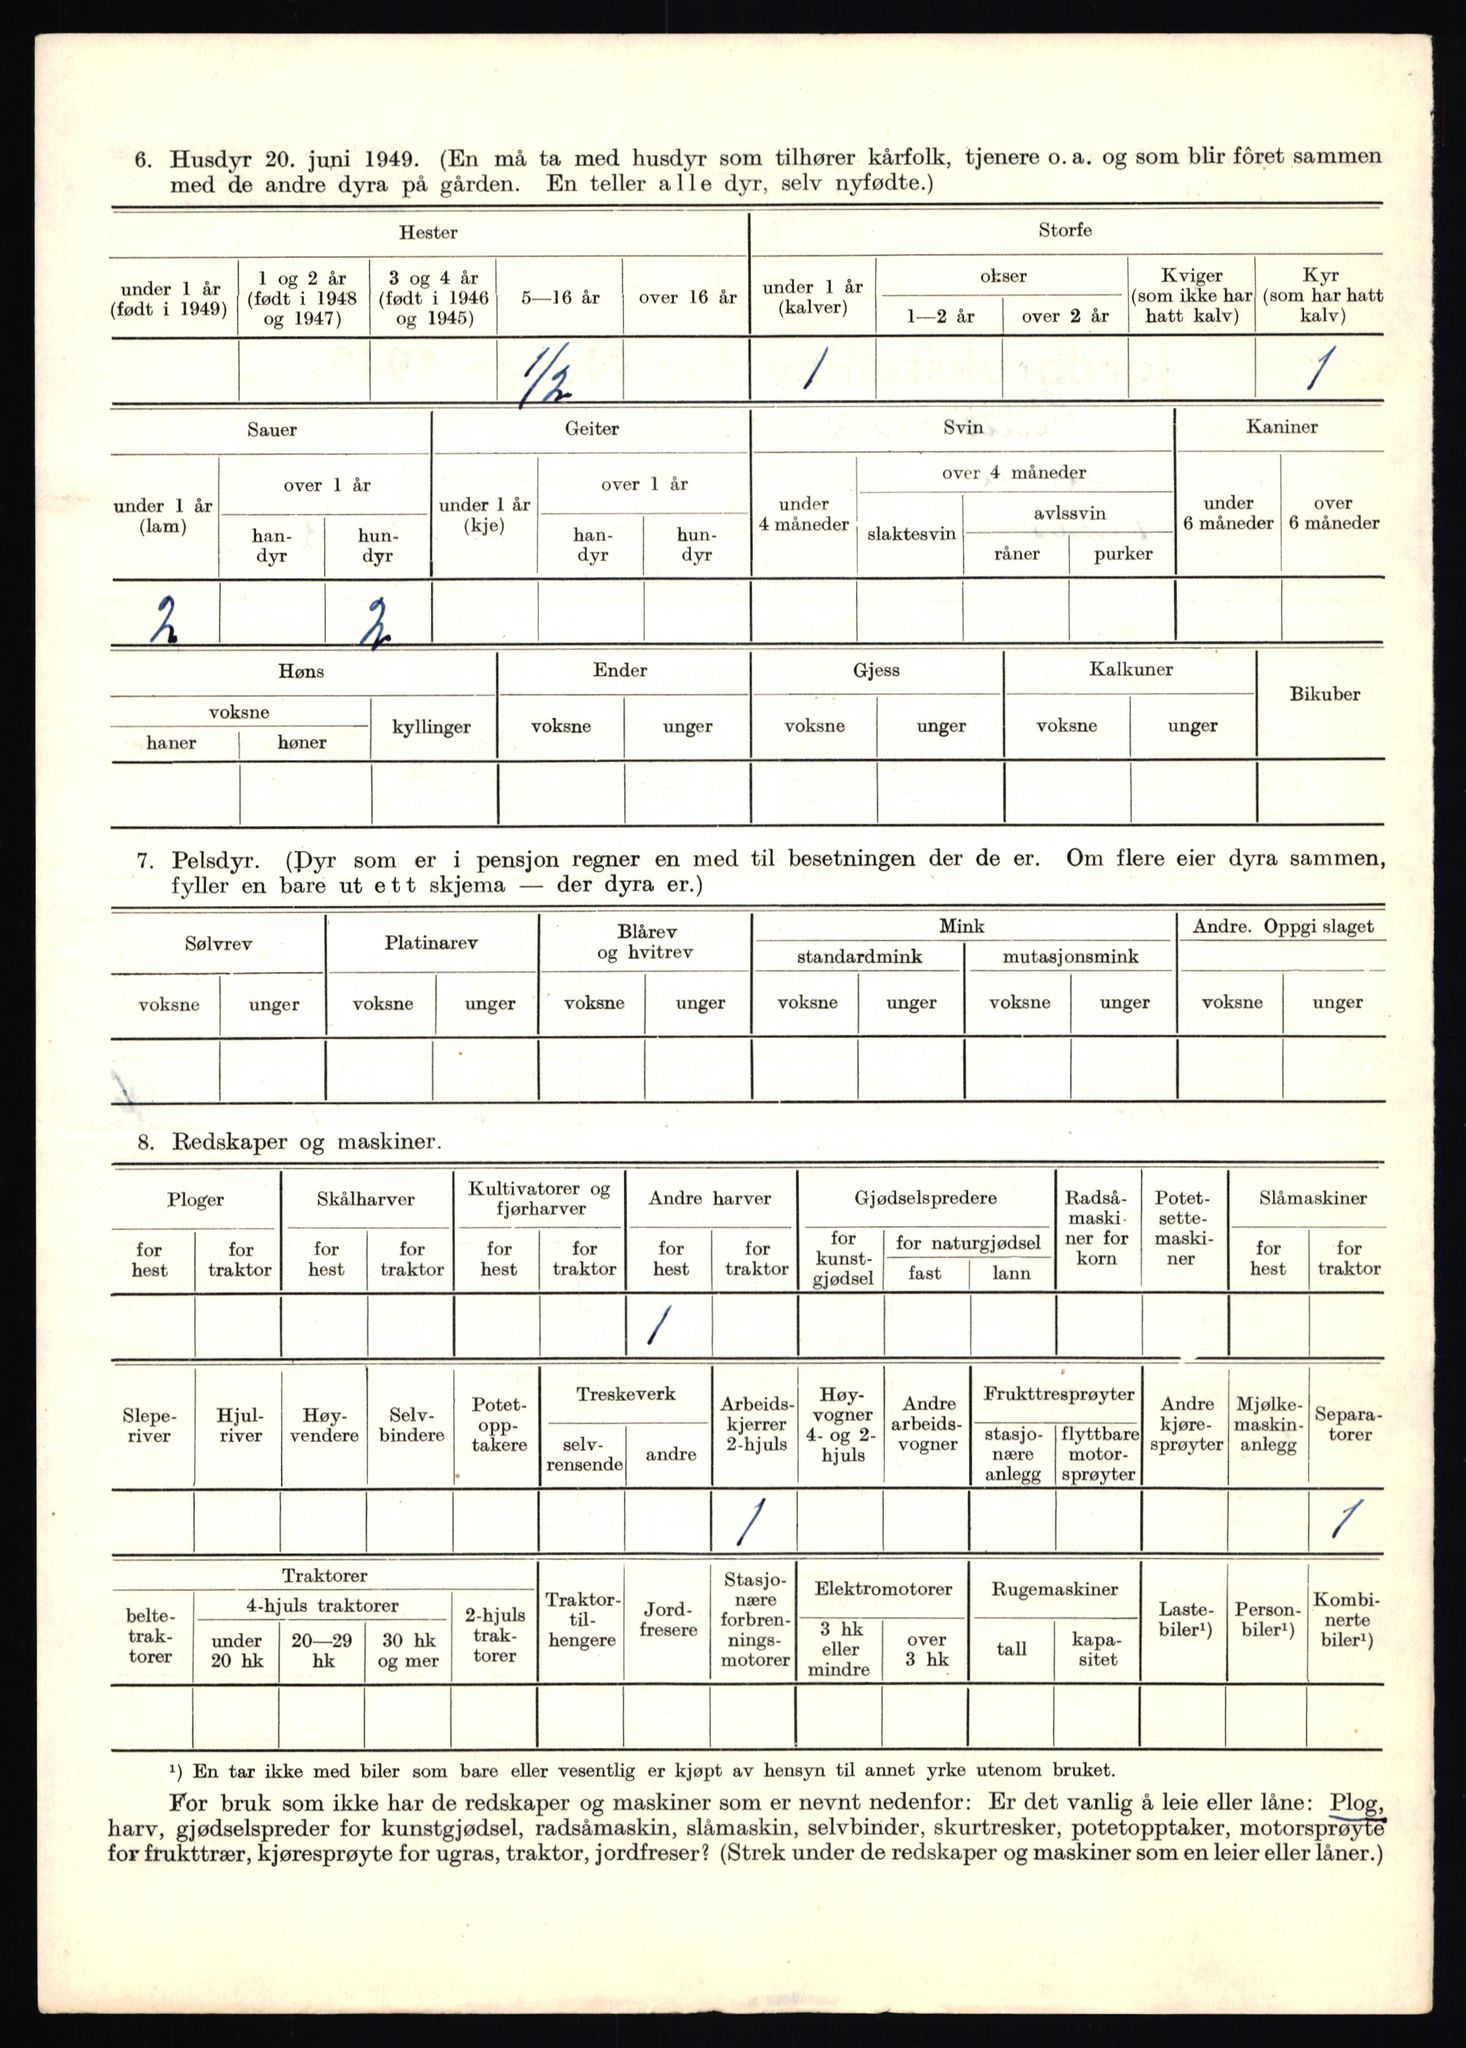 6. Husdyr 20. juni 1949. (En må ta med husdyr som tilhører kårfolk, tjenere o. a. og som blir fôret sammen
med de andre dyra på gården. En teller alle dyr, selv nyfødte.)
Hester Storfe
under 1 år (født i 1949) 1 og 2 år (født i 1948 og 1947) 3 og 4 år (født i 1946 og 1945) 5—16 år over 16 år under 1 år (kalver) okser 1—2 år over 2 år Kviger (som ikke har hatt kalv) Kyr (som har hatt kalv)
1/2 1 1
Sauer Geiter Svin Kaniner
under 1 år (lam) over 1 år handyr hundyr under 1 år (kje) over 1 år handyr hundyr under 4 måneder over 4 måneder slaktesvin avlssvin råner purker under 6 måneder over 6 måneder
2 2
Høns Ender Gjess Kalkuner Bikuber
voksne haner høner kyllinger voksne unger voksne unger voksne unger
7. Pelsdyr. (Dyr som er i pensjon regner en med til besetningen der de er. Om flere eier dyra sammen,
fyller en bare ut ett skjema — der dyra er.)
Sølvrev Platinarev Blårev og hvitrev Mink Andre. Oppgi slaget
standardmink mutasjonsmink
voksne unger voksne unger voksne unger voksne unger voksne unger voksne unger
8. Redskaper og maskiner.
Ploger Skålharver Kultivatorer og fjørharver Andre harver Gjødselspredere Radså-maski-ner for korn Potet-sette-maski-ner Slåmaskiner
for hest for traktor for hest for traktor for hest for traktor for hest for traktor for kunst-gjødsel for naturgjødsel fast lann for hest for traktor
1
Slepe-river Hjul-river Høy-vendere Selv-bindere Potet-opp-takere Treskeverk selv-rensende andre Arbeids-kjerrer 2-hjuls Høy-vogner 4- og 2-hjuls Andre arbeids-vogner Frukttresprøyter stasjo-nære anlegg flyttbare motor-sprøyter Andre kjøre-sprøyter Mjølke-maskin-anlegg Separa-torer
1 1
Traktorer belte-trak-torer 4-hjuls traktorer under 20 hk 20—29 hk 30 hk og mer 2-hjuls trak-torer Traktor-til-hengere Jord-fresere Stasjo-nære forbren-nings-motorer Elektromotorer 3 hk eller mindre over 3 hk Rugemaskiner tall kapa-sitet Laste-biler¹) Person-biler¹) Kombi-nerte biler¹)
¹) En tar ikke med biler som bare eller vesentlig er kjøpt av hensyn til annet yrke utenom bruket.
For bruk som ikke har de redskaper og maskiner som er nevnt nedenfor: Er det vanlig å leie eller låne: Plog,
harv, gjødselspreder for kunstgjødsel, radsåmaskin, slåmaskin, selvbinder, skurtresker, potetopptaker, motorsprøyte
for frukttrær, kjøresprøyte for ugras, traktor, jordfreser? (Strek under de redskaper og maskiner som en leier eller låner.)